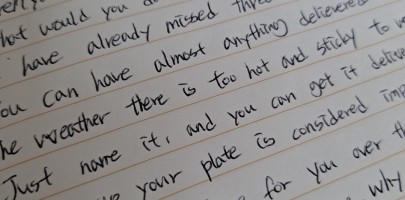 hot would you do
have already missed three
ou can have almost anything delievere
he weather there is too hot and sticky to w
Just name it, and you can get it delive
your plate is considered imp
for you over th
why